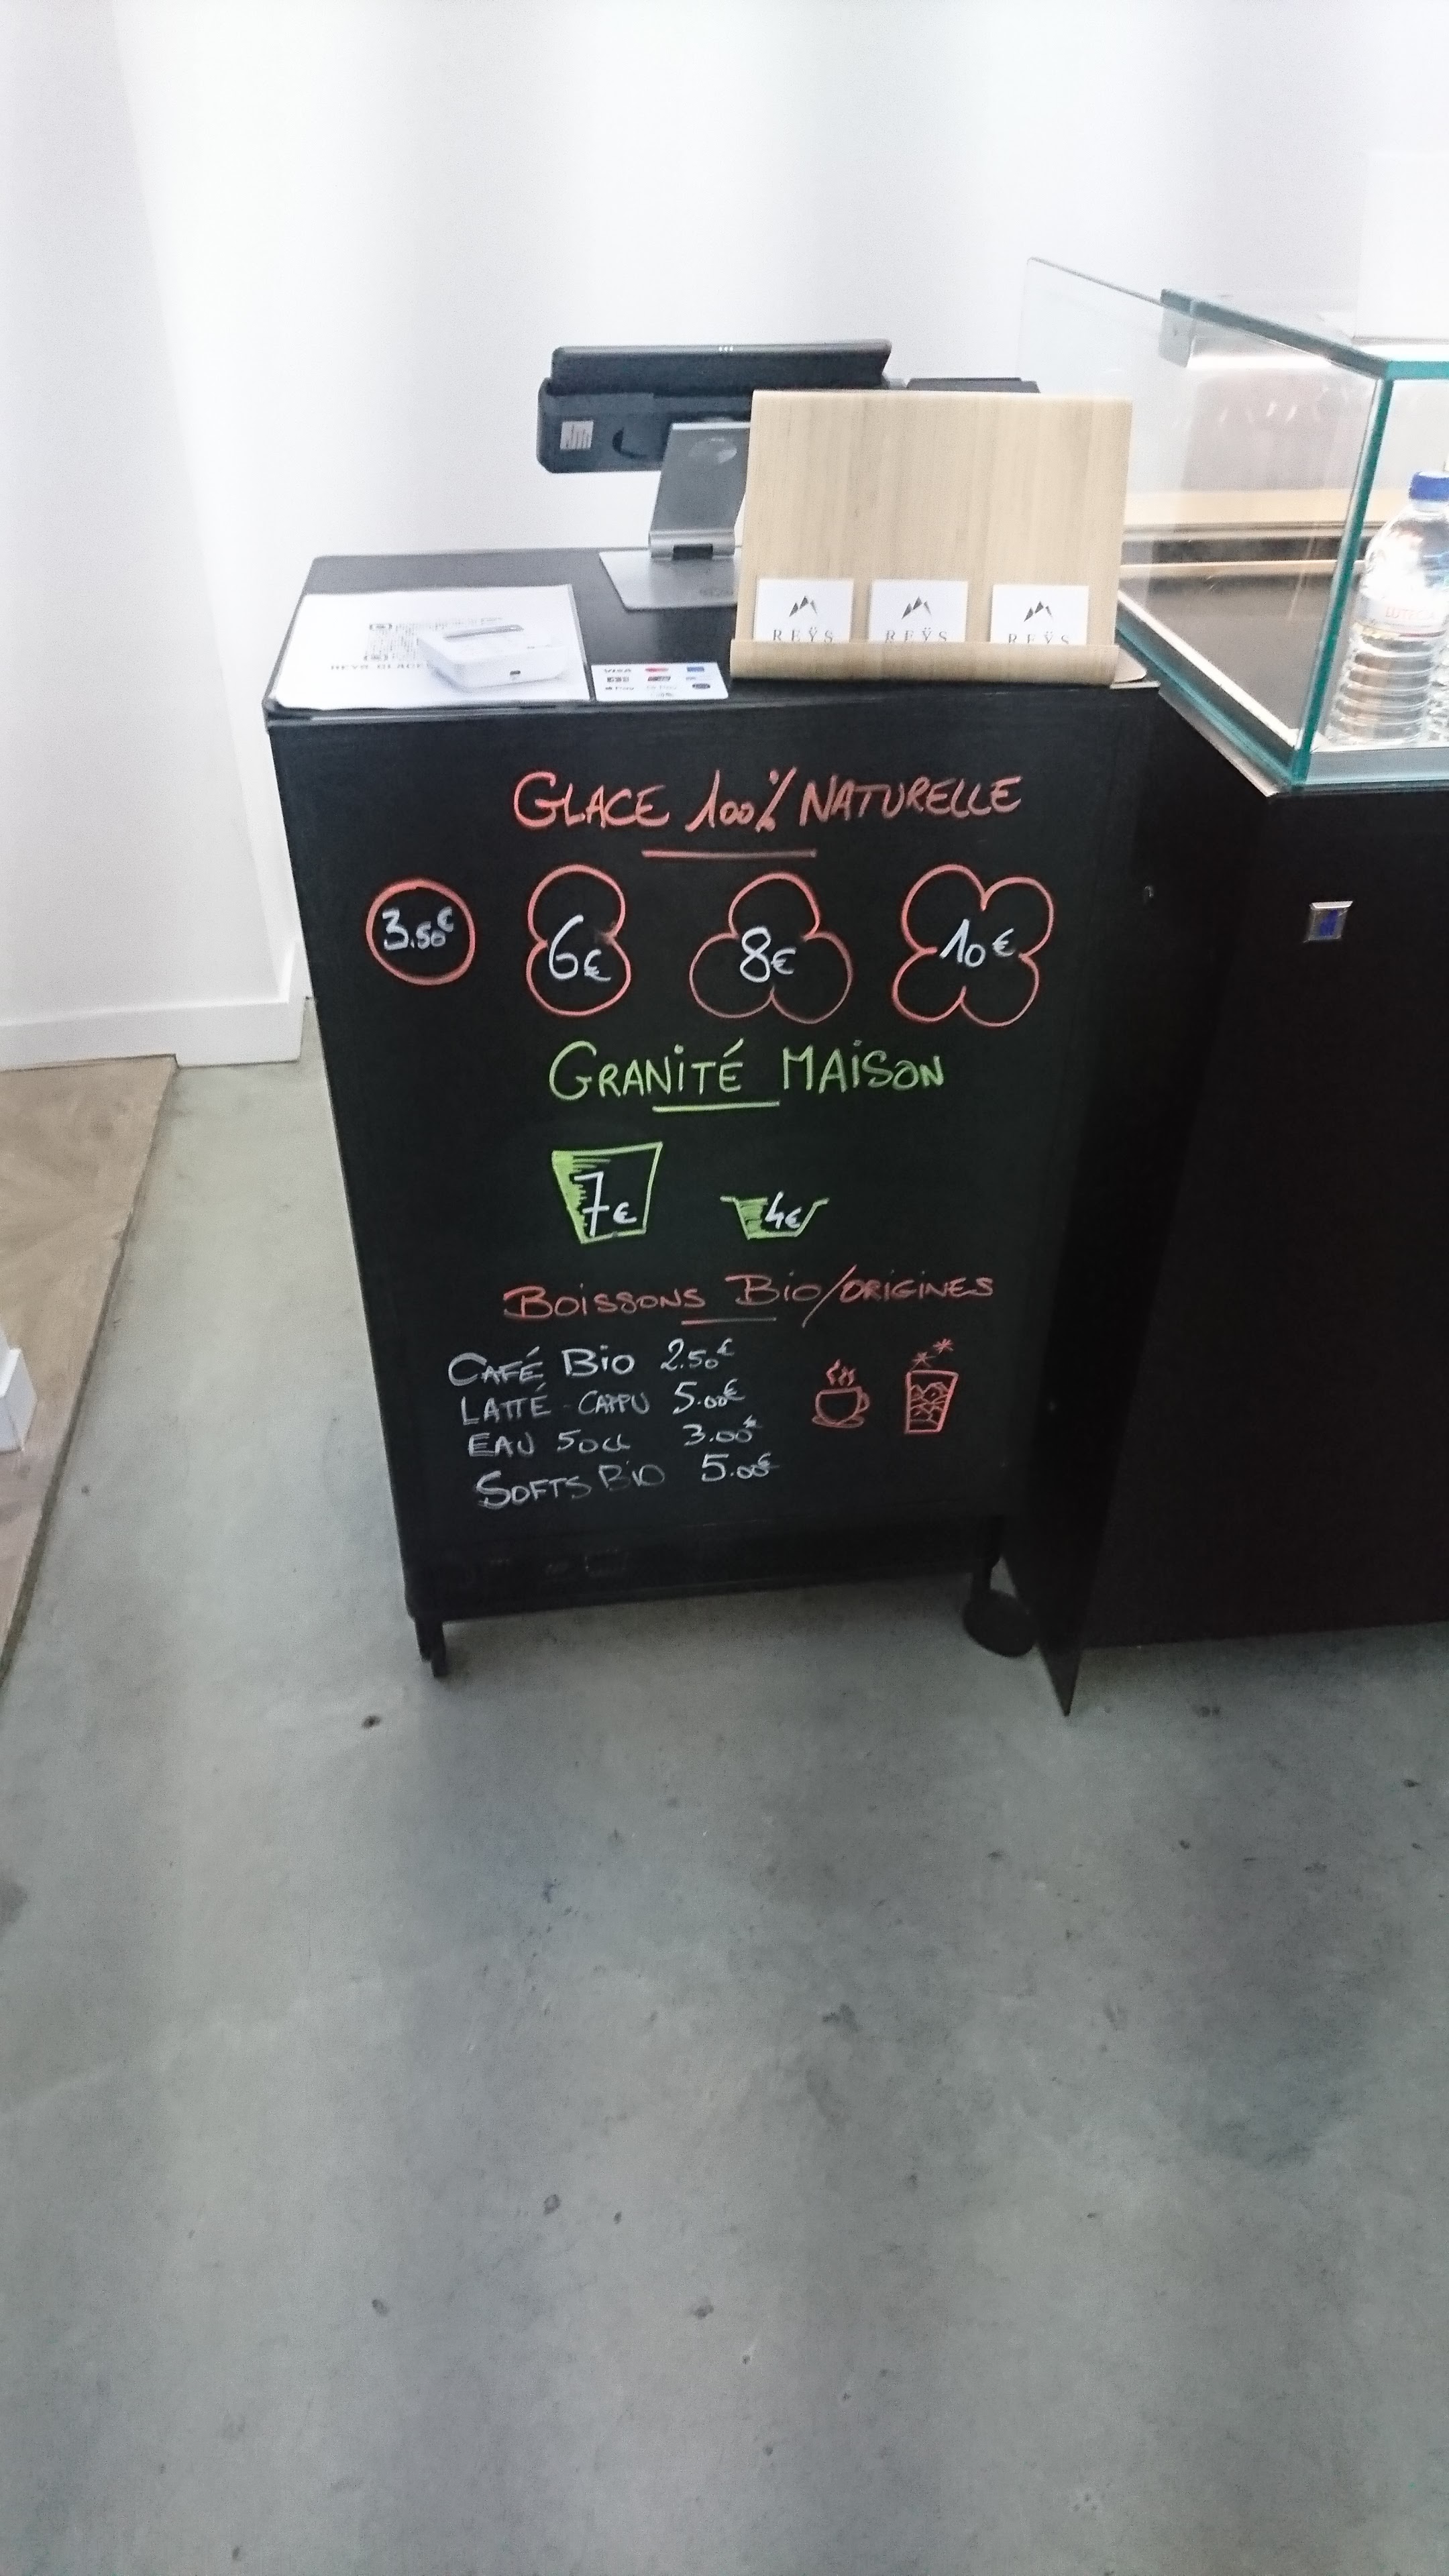 REŸS REŸS REŸS
VISA
GLACE 100% NATURELLE
3.50€ 6€ 8€ 10€
GRANITÉ MAISON
7€ 4€
BOISSONS BIO/ORIGINES
CAFÉ BIO 2.50€
LATTÉ - CAPPU 5.00€
EAU 50CL 3.00€
SOFTS BIO 5.00€